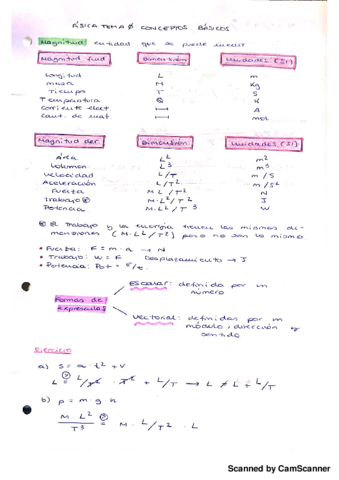 FÍSICA TEMA 0 CONCEPTOS BÁSICOS
Magnitud: entidad que se puede medir
Magnitud fund Dimensión Unidades (SI)
Longitud L m
masa M Kg
Tiempo T S
Temperatura K
Corriente elect. A
Cant. de mat. mol
Magnitud der. Dimensión Unidades (SI)
Área L² m²
Volumen L³ m³
Velocidad L/T m/s
Aceleración L/T² m/s²
Fuerza M·L/T² N
Trabajo M·L²/T² J
Potencia W
El Trabajo y la energía tienen las mismas di-
mensiones (M·L²/T²) pero no son lo mismo
• Fuerza: F = m·a → N
• Trabajo: W = F · Desplazamiento → J
• Potencia: Pot = E/t.
Escalar: definida por un
número
Formas de
expresarlas
Vectorial: definidas por un
módulo, dirección y
sentido
Ejercicio
a) S = a · t² + v
L ≟ L/T² · T² + L/T → L ≠ L + L/T
b) p = m · g · h
M·L²/T³ ≟ M · L/T² · L
Scanned by CamScanner